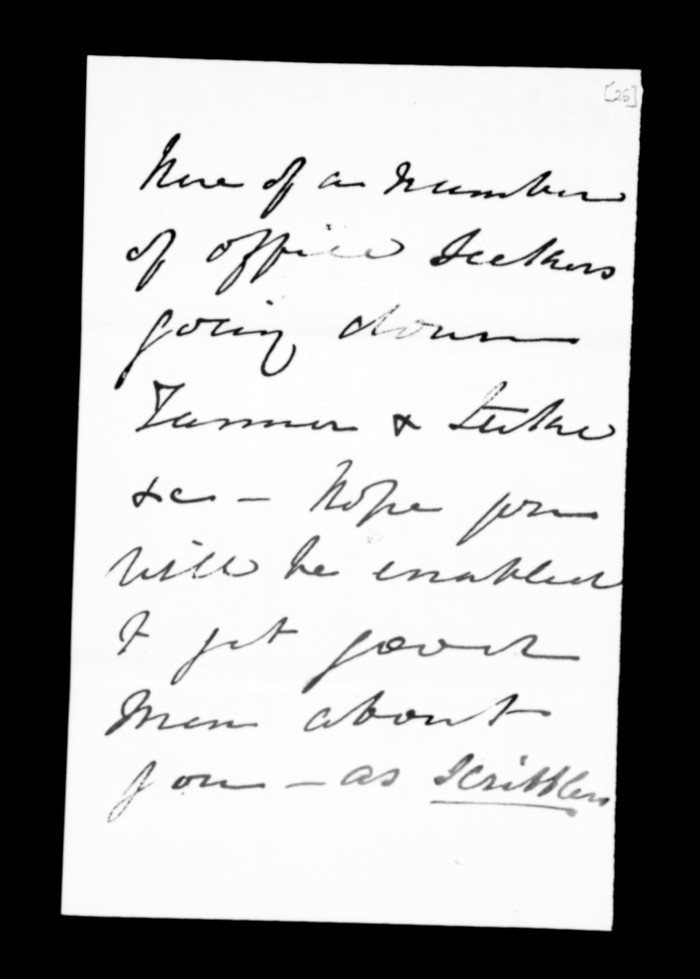 [26]
here of a number
of office Seekers
going down
Tanner &
&c — hope you
will be enabled
to get good
Men about
you — as Scribblers